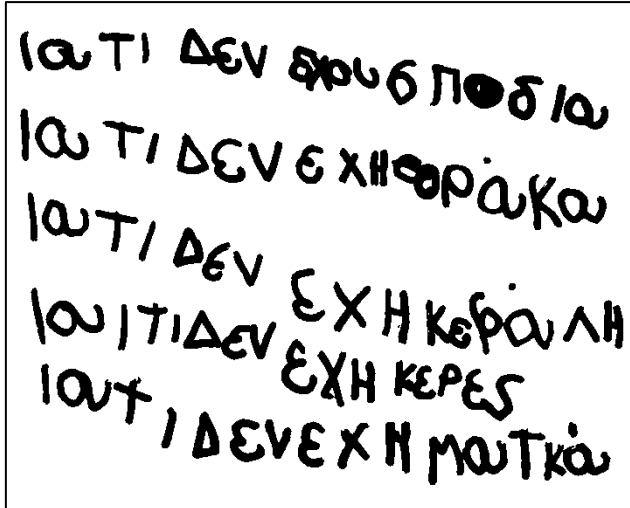 ιατι Δεν έχους ποδια
ιατι Δεν εχη φράκα
ιατι Δεν εχη κεφάλη
ιαιτι Δεν εχη κερες
ιατι Δεν εχη ματκά